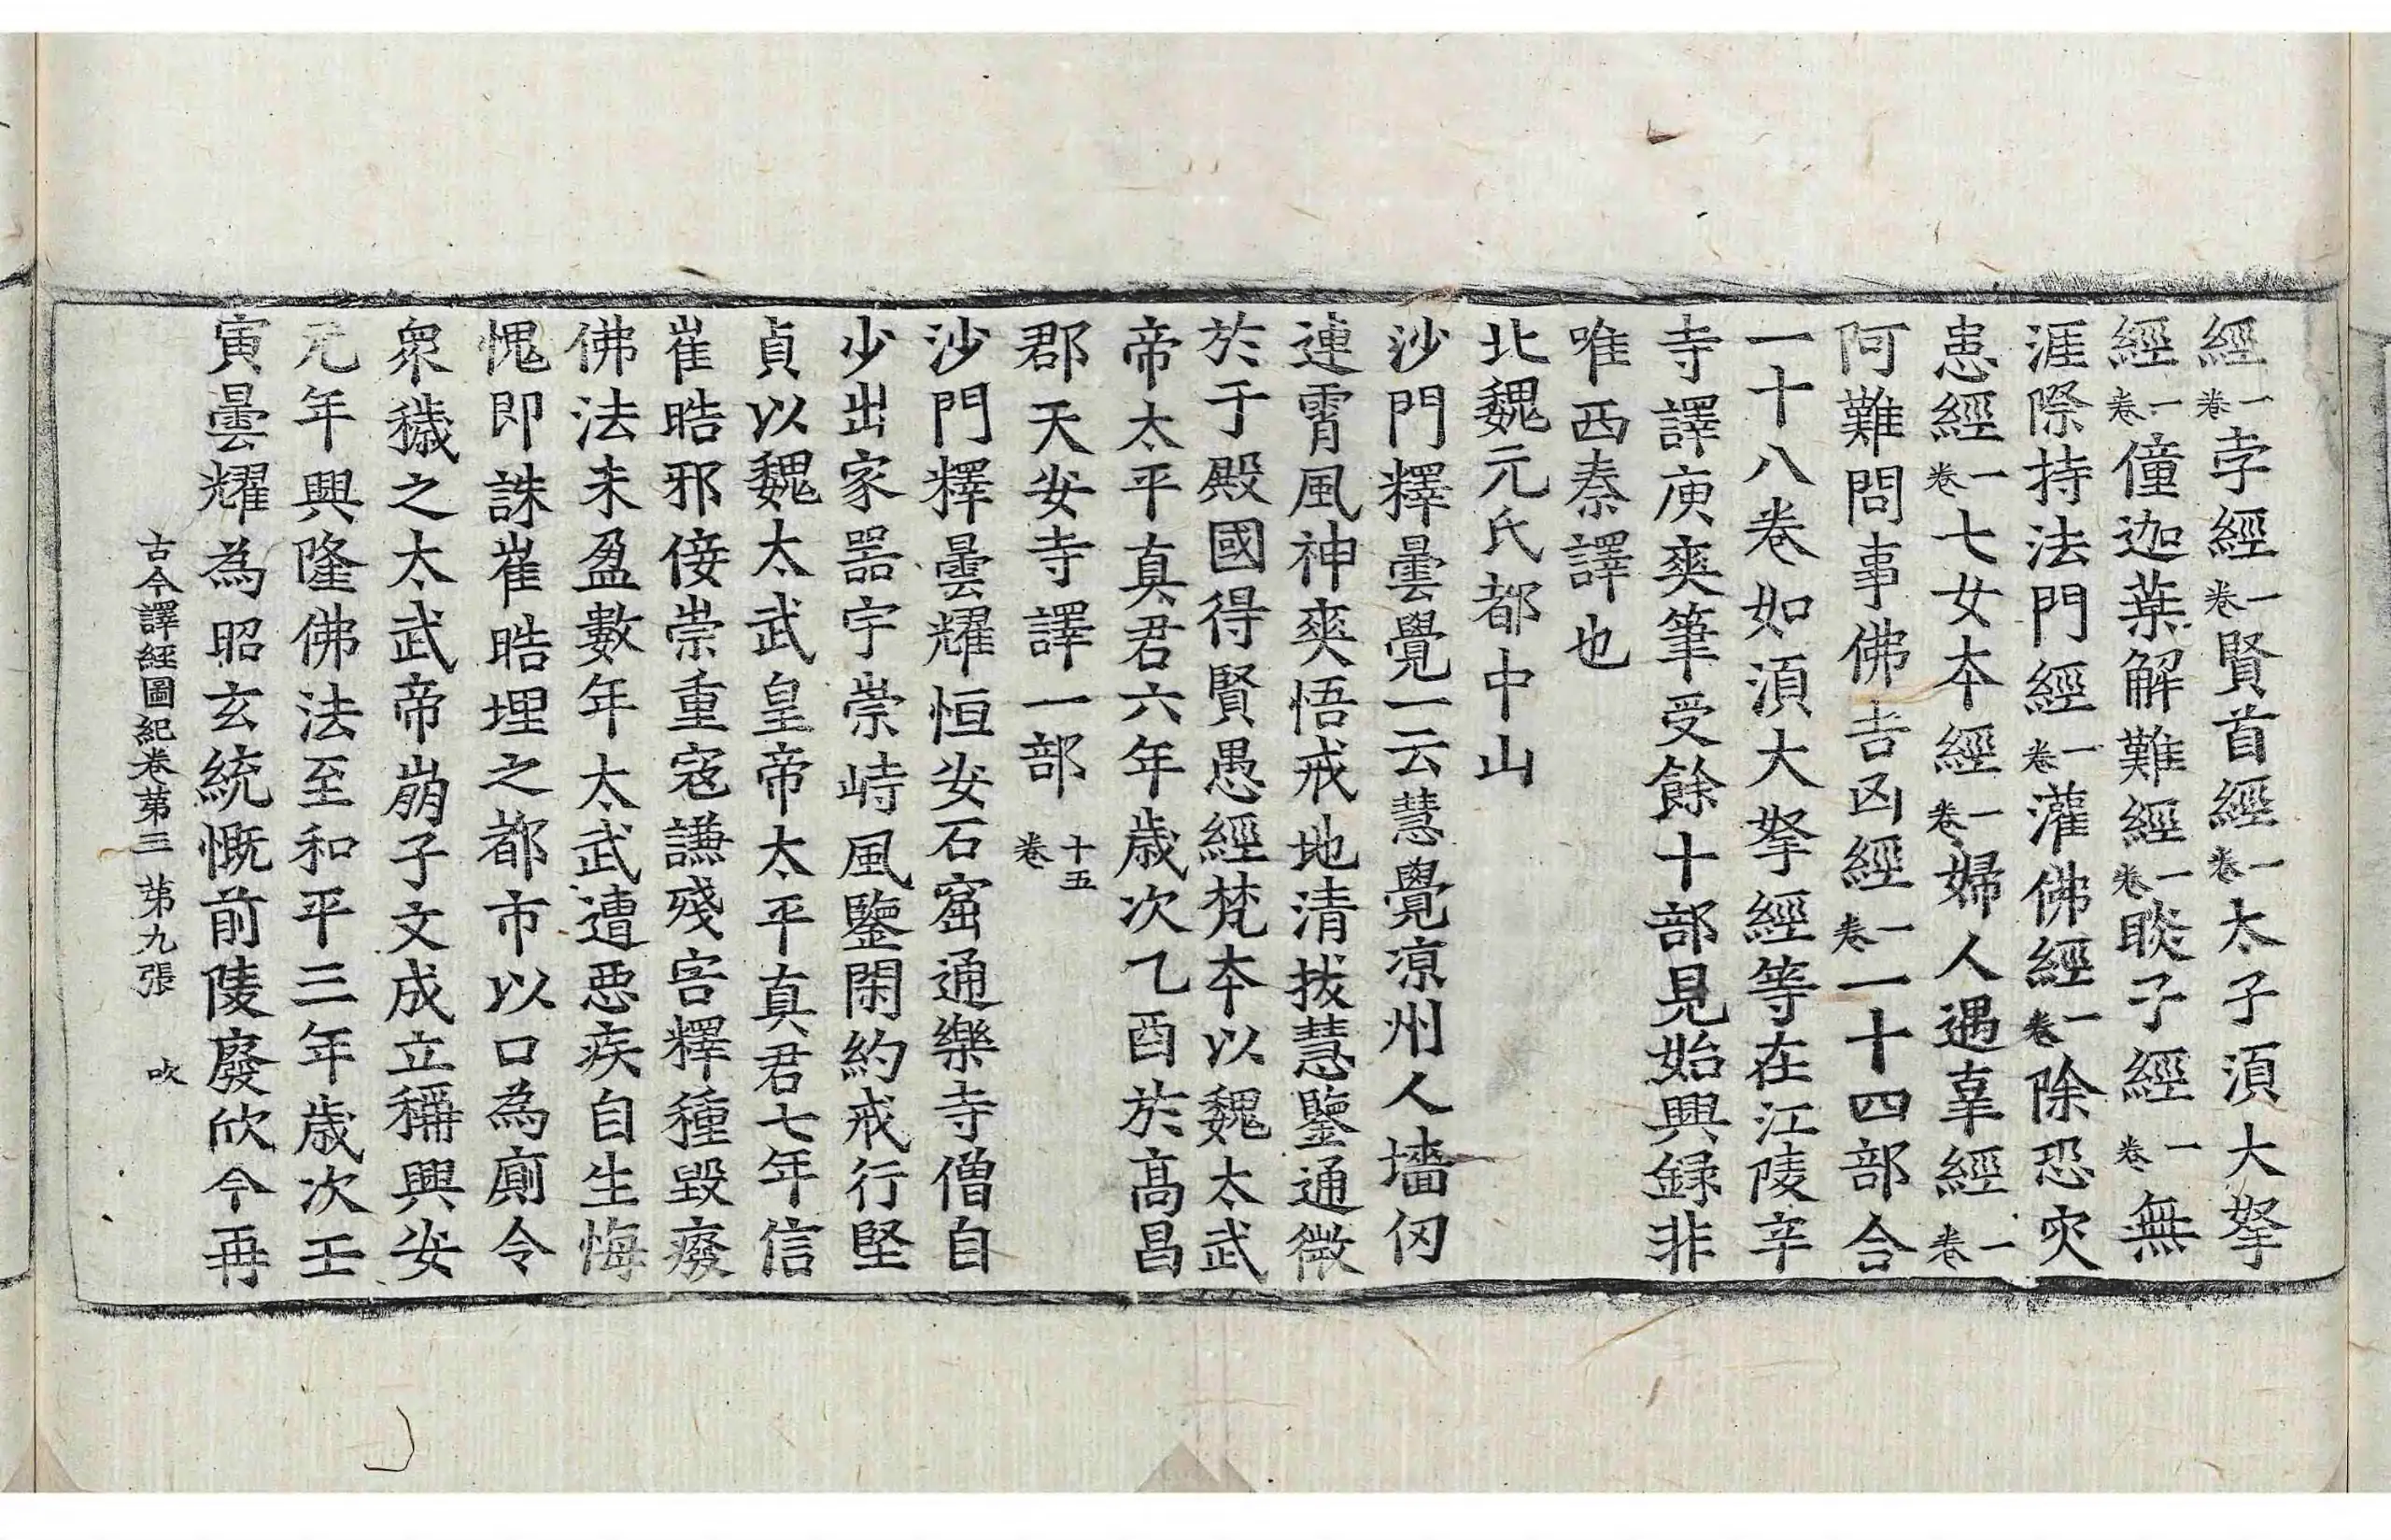 經一卷孛經一卷賢首經一卷太子須大拏
經一卷僮迦葉解難經一卷睒子經一卷無
涯際持法門經一卷灌佛經一卷除恐灾
患經一卷七女本經一卷婦人遇辜經一卷
阿難問事佛吉凶經一卷一十四部合
一十八卷如須大拏經等在江陵辛
寺譯庾爽筆受餘十部見始興録非
唯西秦譯也
北魏元氏都中山
沙門釋曇覺一云慧覺凉州人墻仞
連霄風神爽悟戒地清拔慧鑒通微
於于殿國得賢愚經梵本以魏太武
帝太平真君六年歲次乙酉於高昌
郡天安寺譯一部十五卷
沙門釋曇耀恒安石窟通樂寺僧自
少出家器宇崇峙風鑒閑約戒行堅
貞以魏太武皇帝太平真君七年信
崔晧邪佞崇重寇謙殘害釋種毀癈
佛法未盈數年太武遭惡疾自生悔
愧即誅崔晧埋之都市以口為廁令
衆穢之太武帝崩子文成立稱興安
元年興隆佛法至和平三年歲次壬
寅曇耀為昭玄統慨前陵廢欣今再
古今譯經圖紀卷苐三 苐九張 吹